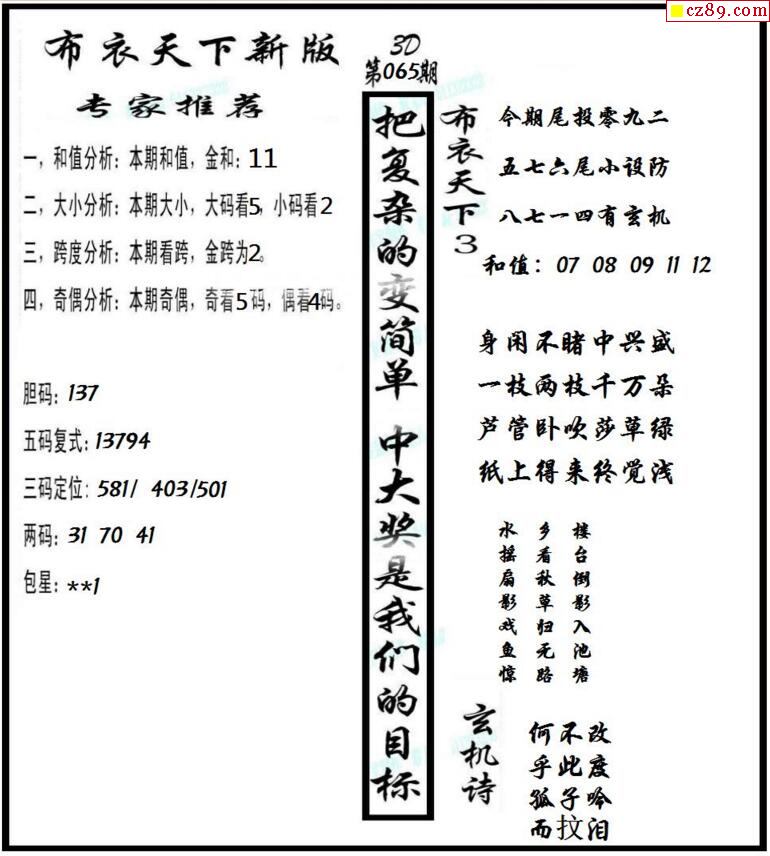 cz89.com
布衣天下新版
专家推荐
一，和值分析：本期和值，金和：11
二，大小分析：本期大小，大码看5，小码看2
三，跨度分析：本期看跨，金跨为2。
四，奇偶分析：本期奇偶，奇看5码，偶看4码。
胆码：137
五码复式：13794
三码定位：581/ 403/501
两码：31 70 41
包星：**1
3D
第065期
把复杂的变简单 中大奖是我们的目标
布衣天下3
今期尾投零九二
五七六尾小设防
八七一四有玄机
和值：07 08 09 11 12
身闲不睹中兴盛
一枝两枝千万朵
芦管卧吹莎草绿
纸上得来终觉浅
水摇扇影戏鱼惊
乡看秋草归无路
楼台倒影入池塘
玄机诗
何不改
乎此度
孤子吟
而抆泪